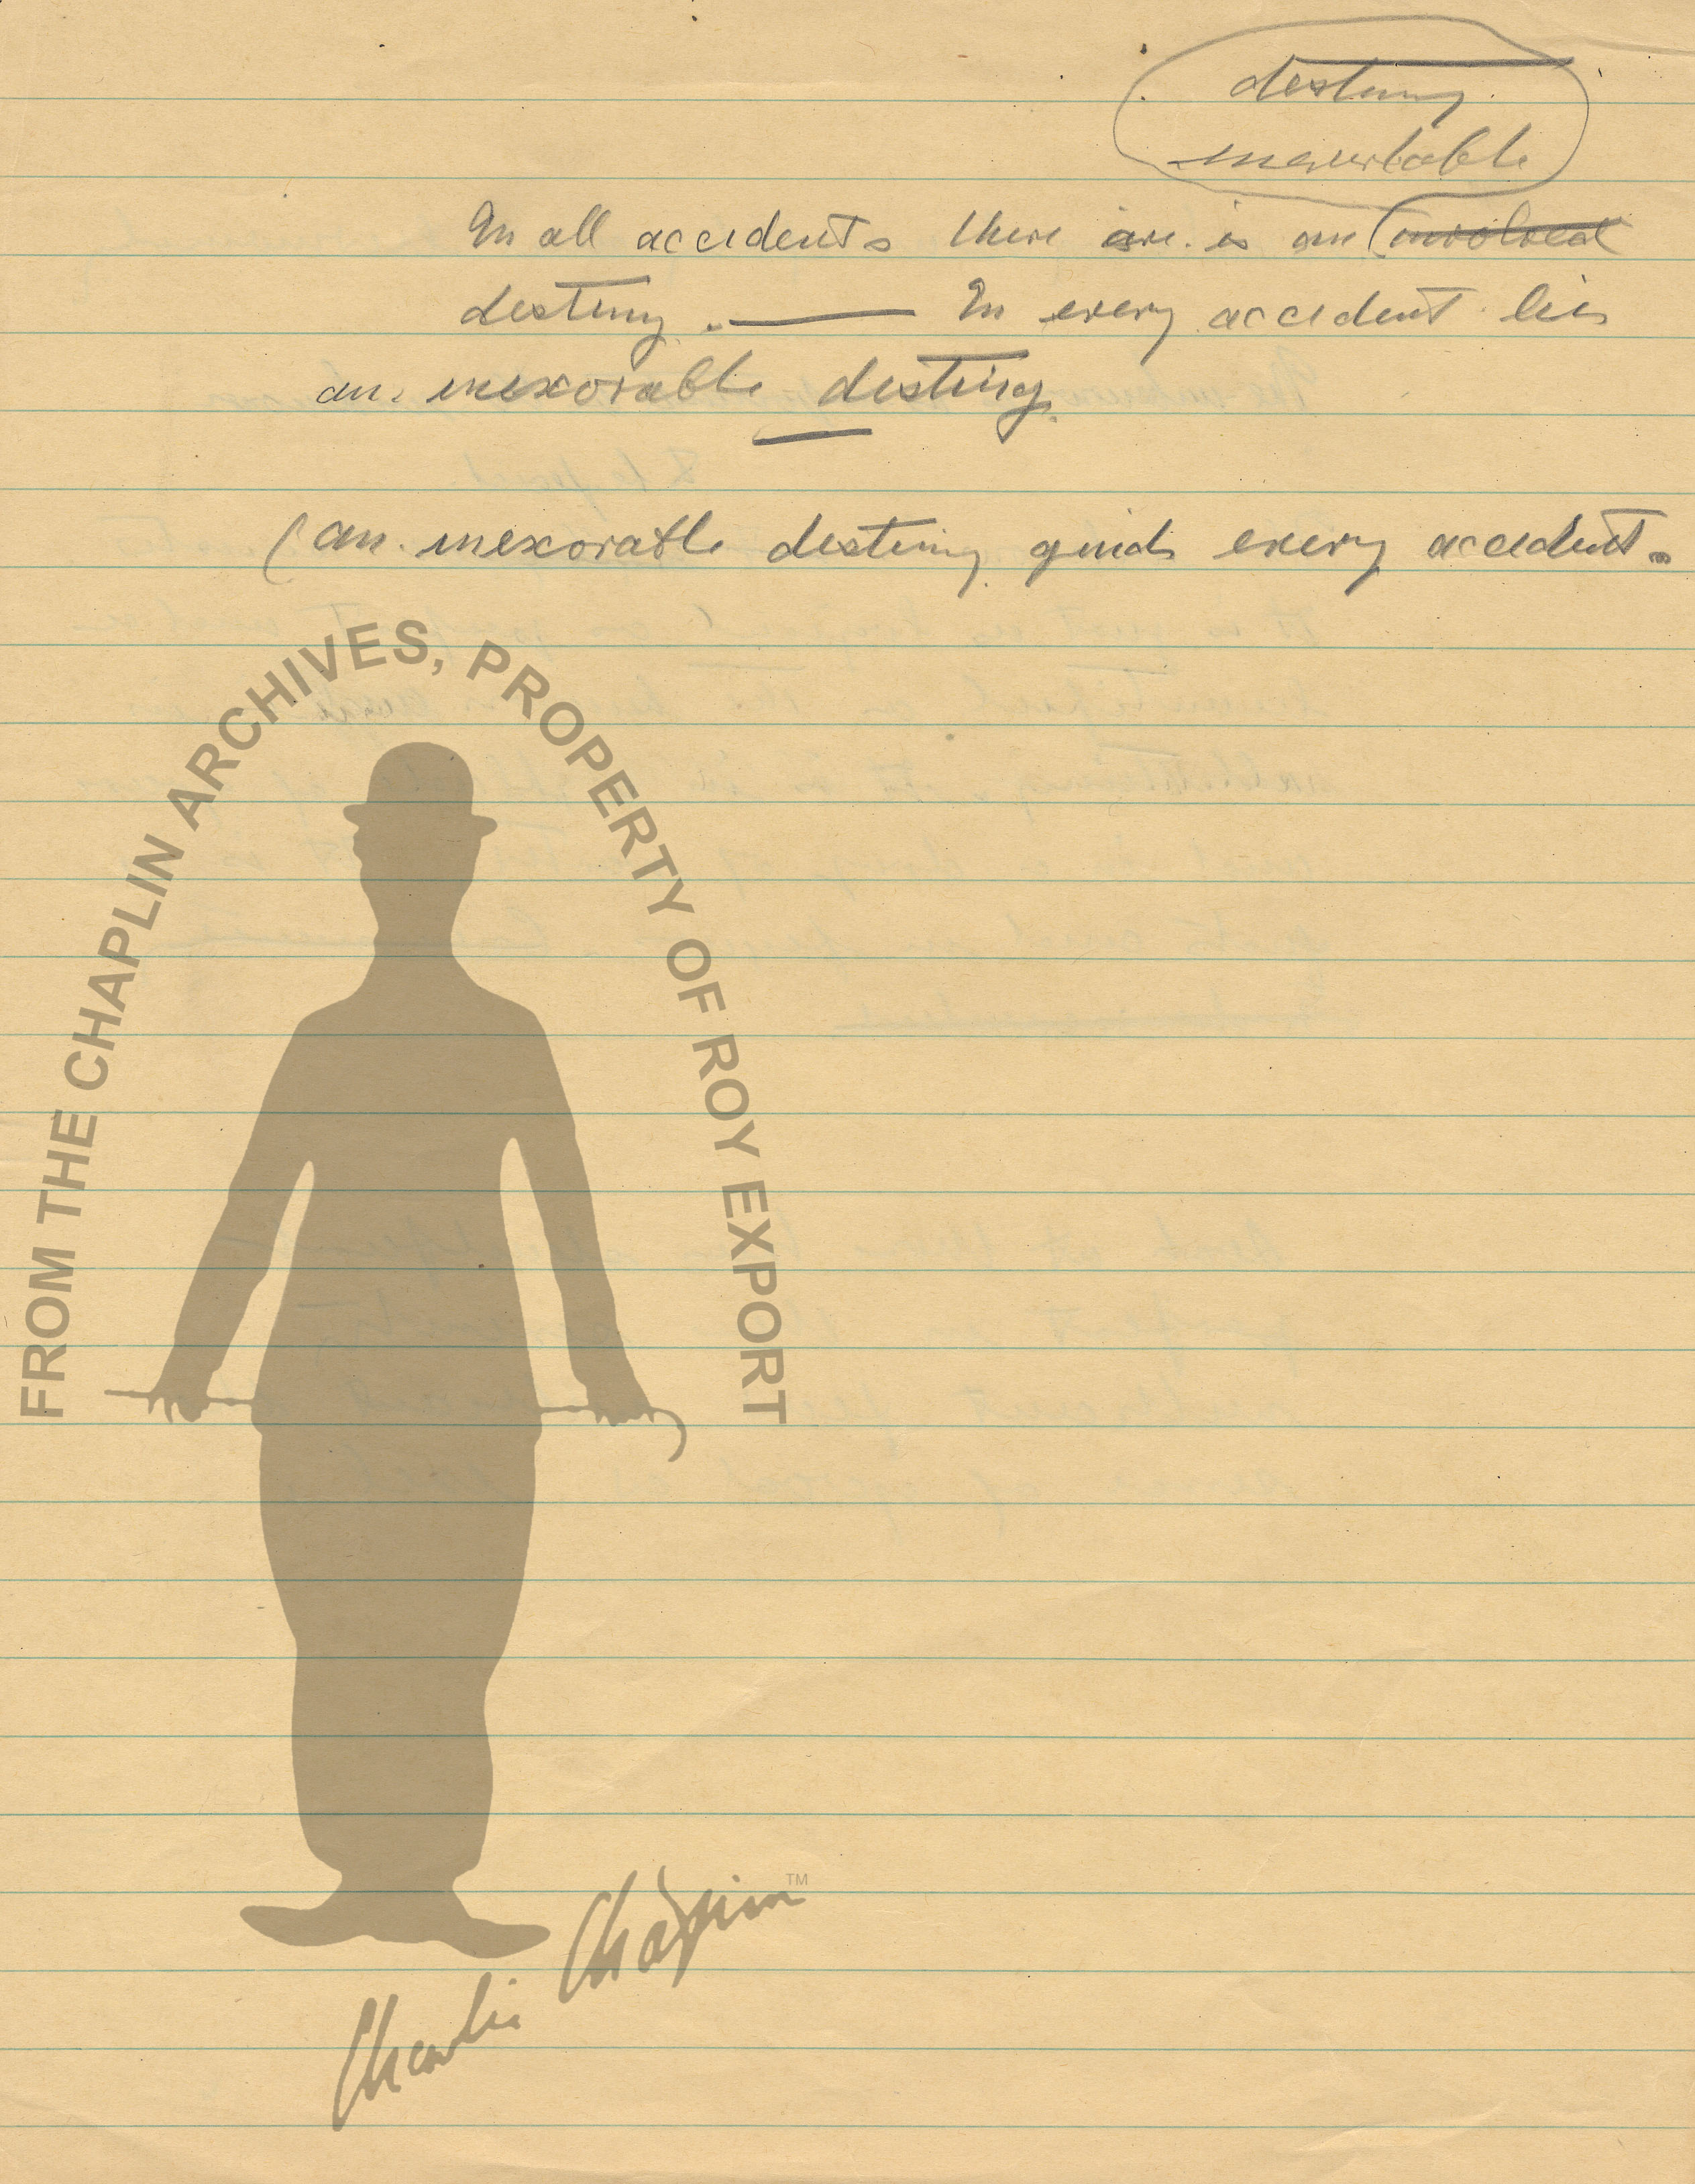 destiny
inevitable
In all accidents there are is an (involved
destiny. — In every accident lies
an inexorable destiny.
(an inexorable destiny guids every accident.
FROM THE CHAPLIN ARCHIVES, PROPERTY OF ROY EXPORT
Charlie Chaplin™